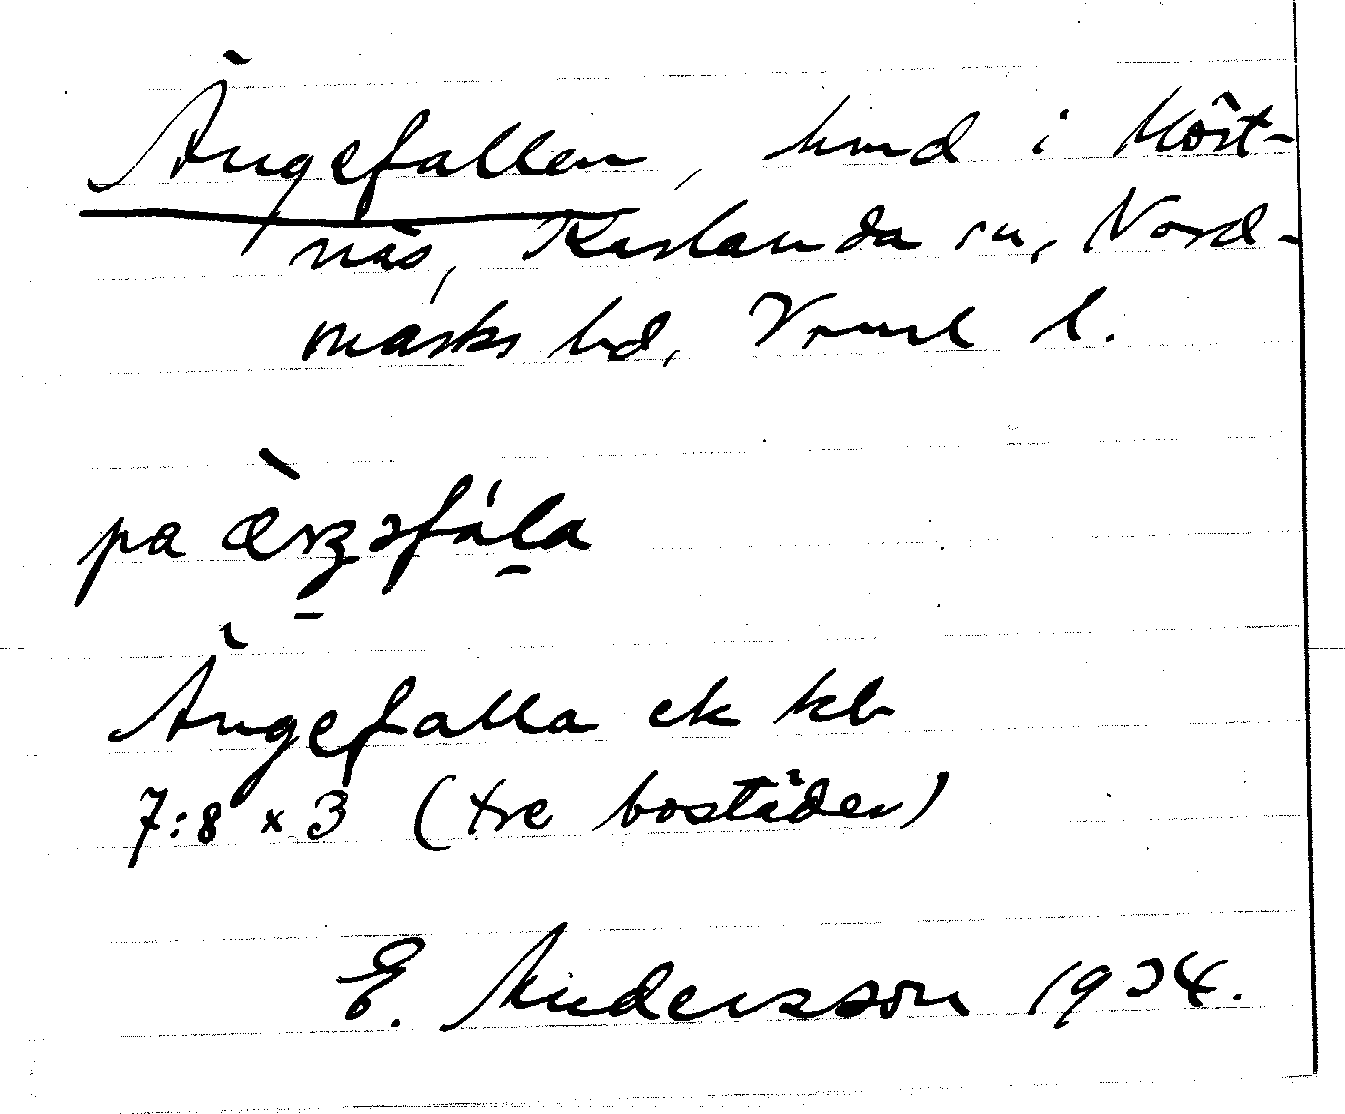 Ängefallen, hmd i Mört-
näs, Karlanda sn, Nord-
marks hd, Vrml l.
pa
Ängefalla ek kb
7:8 x 3 (tre bostäder)
E. Andersson 1934.